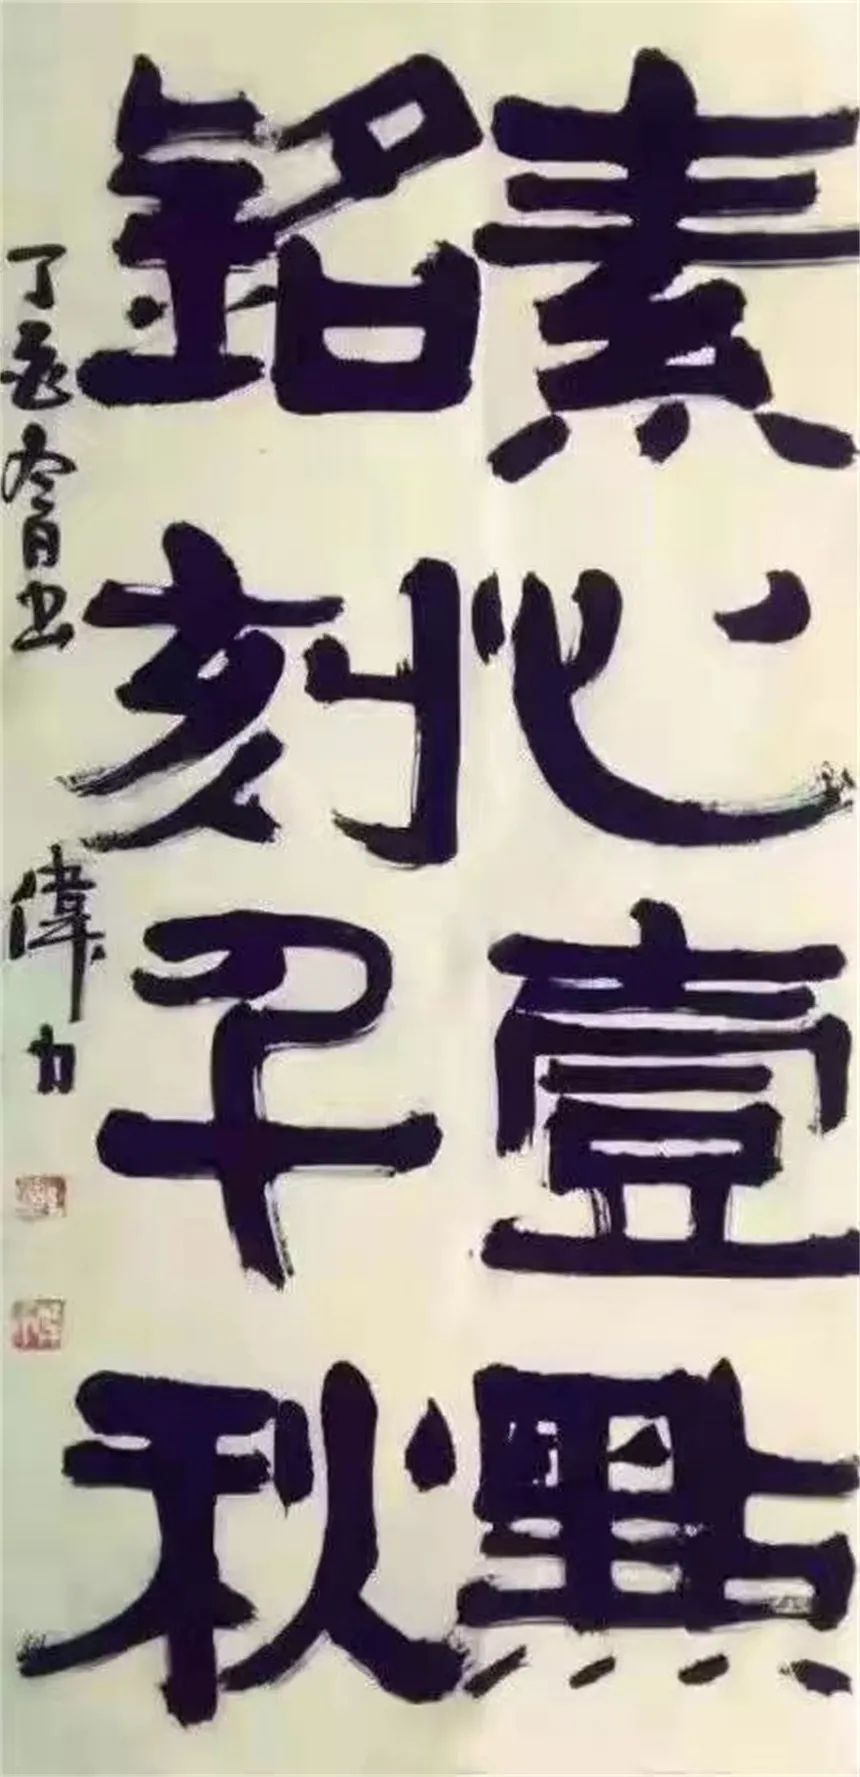 素心壹點
銘刻千秋
丁亥冬月書
偉力